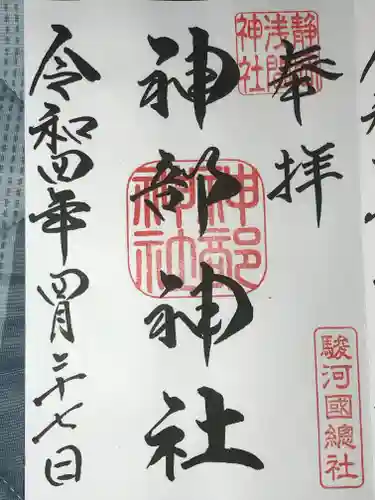 奉拝
静岡浅間神社
駿河國總社
神部神社
神部神社
令和四年四月二十七日